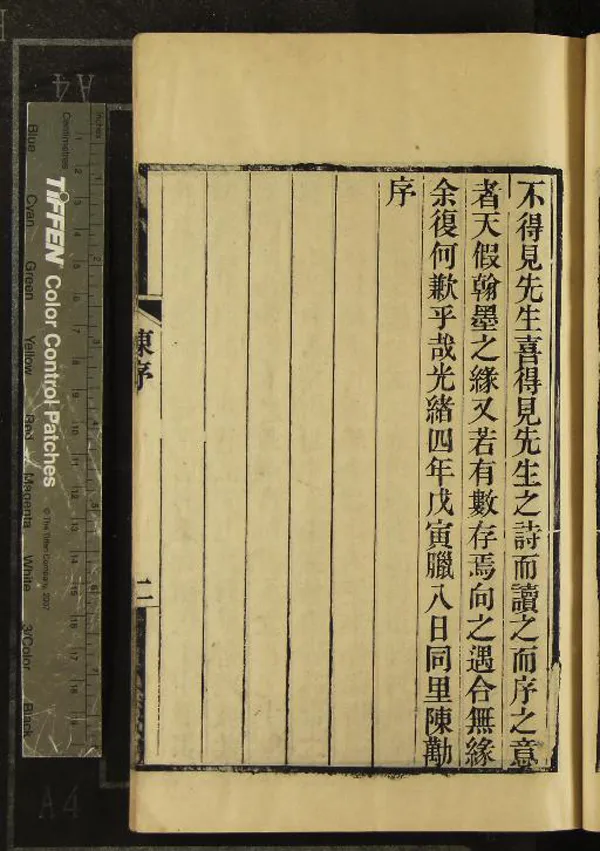 不得見先生喜得見先生之詩而讀之而序之意
者天假翰墨之緣又若有數存焉向之遇合無緣
余復何歉乎哉光緒四年戊寅臘八日同里陳勱
序
陳序
二
Inches
Centimetres
TIFFEN Color Control Patches
© The Tiffen Company, 2007
Blue
Cyan
Green
Yellow
Red
Magenta
White
3/Color
Black
A4
A4